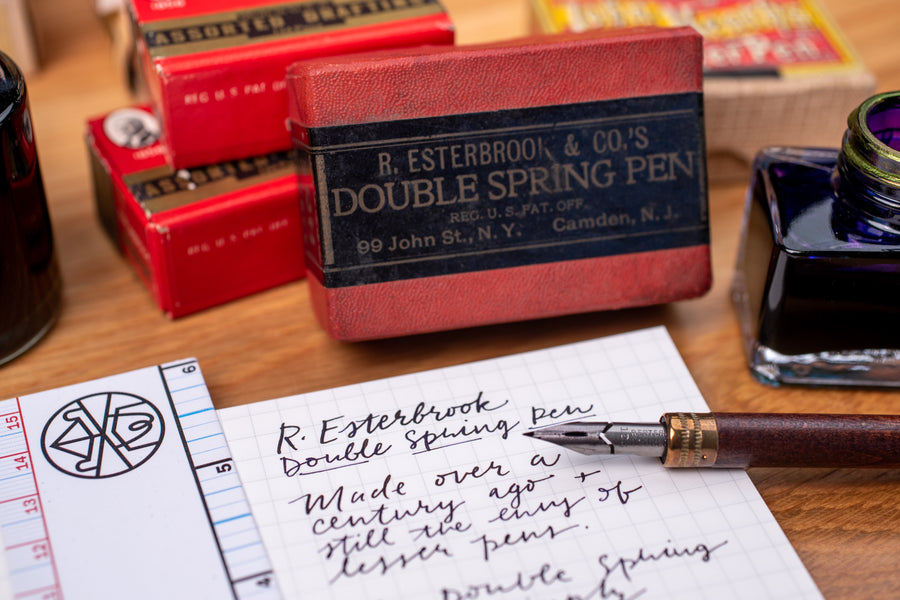 ASSORTED DRAFTING
REG U S PAT OFF
R. ESTERBROOK & CO.'S
DOUBLE SPRING PEN
REG. U.S. PAT. OFF.
99 John St., N. Y. Camden, N. J.
REG U S PAT OFF
R. Esterbrook
Double Spring pen
Made over a
century ago +
still the envy of
lesser pens.
Double Spring
15
14
13
12
6
5
4